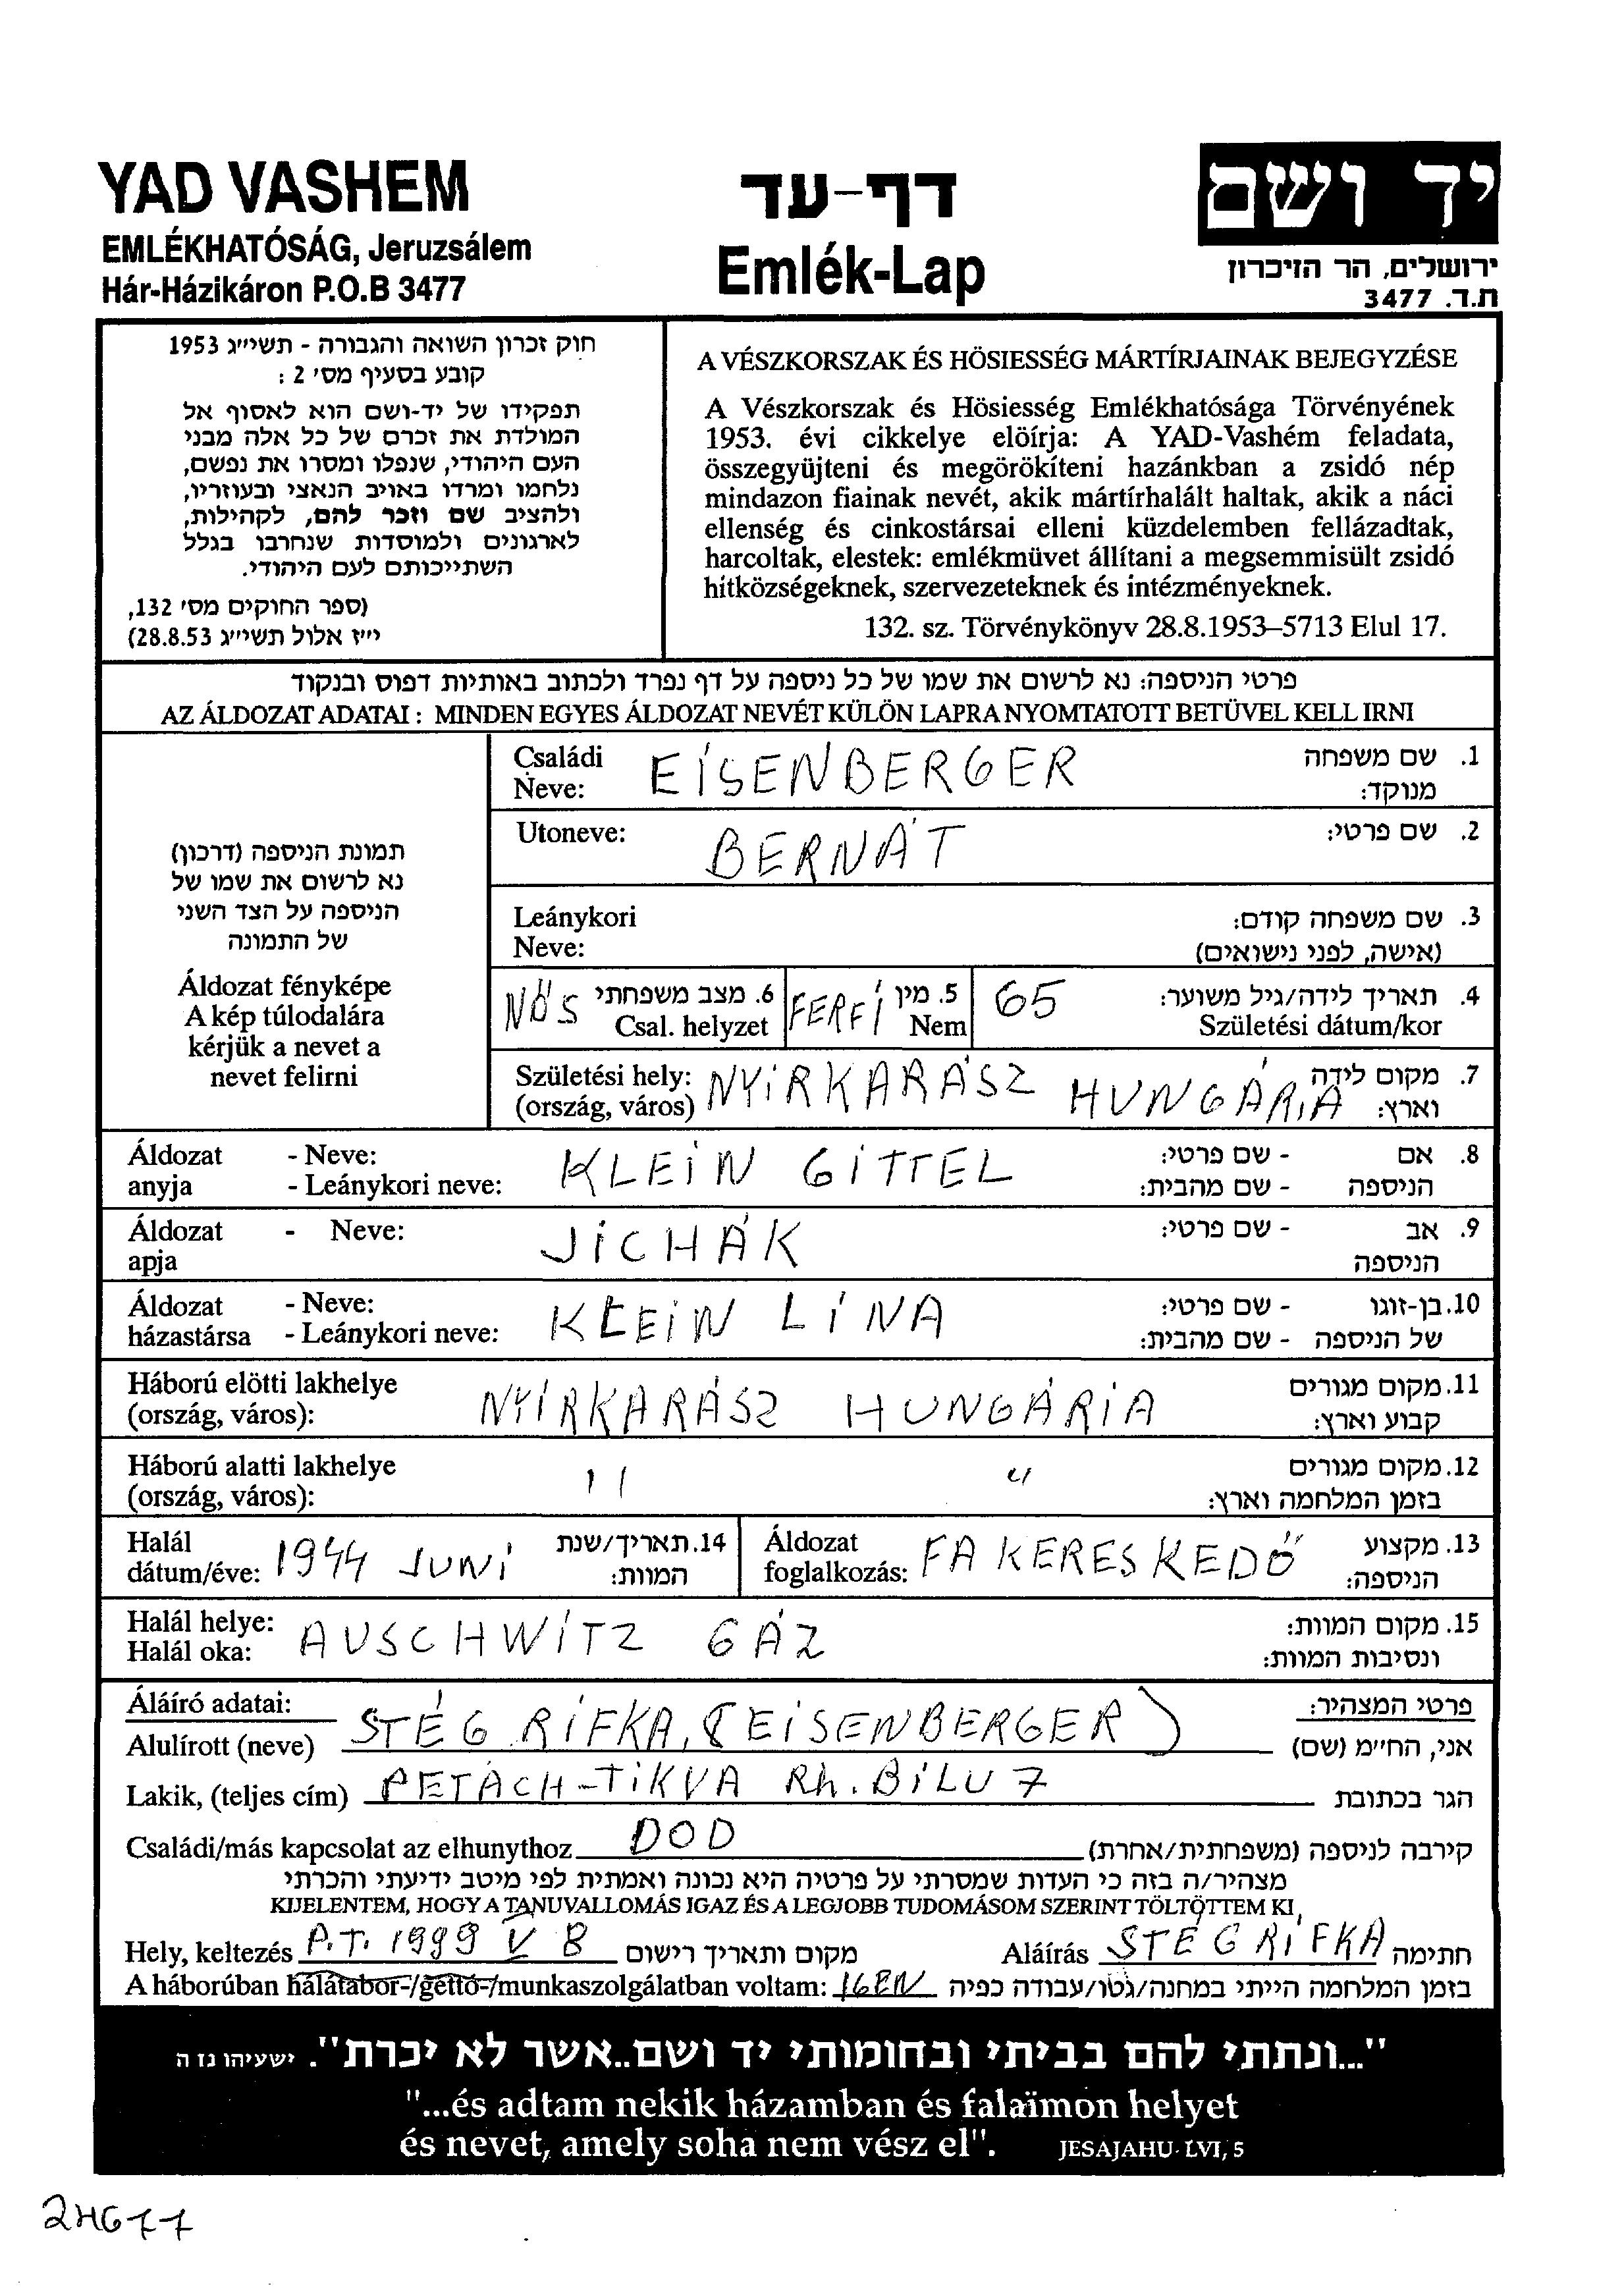 YAD VASHEM
EMLÉKHATÓSÁG, Jeruzsálem
Hár-Házikáron P.O.B 3477
דף-עד
Emlék-Lap
יד ושם
ירושלים, הר הזיכרון
ת.ד. 3477
חוק זכרון השואה והגבורה - תשי״ג 1953
קובע בסעיף מס׳ 2 :
תפקידו של יד-ושם הוא לאסוף אל
המולדת את זכרם של כל אלה מבני
העם היהודי, שנפלו ומסרו את נפשם,
נלחמו ומרדו באויב הנאצי ובעוזריו,
ולהציב שם וזכר להם, לקהילות,
לארגונים ולמוסדות שנחרבו בגלל
השתייכותם לעם היהודי.
(ספר החוקים מס׳ 132,
י״ז אלול תשי״ג 28.8.53)
A VÉSZKORSZAK ÉS HÖSIESSÉG MÁRTÍRJAINAK BEJEGYZÉSE
A Vészkorszak és Hösiesség Emlékhatósága Törvényének
1953. évi cikkelye elöírja: A YAD-Vashém feladata,
összegyüjteni és megörökíteni hazánkban a zsidó nép
mindazon fiainak nevét, akik mártírhalált haltak, akik a náci
ellenség és cinkostársai elleni küzdelemben fellázadtak,
harcoltak, elestek: emlékmüvet állítani a megsemmisült zsidó
hitközségeknek, szervezeteknek és intézményeknek.
132. sz. Törvénykönyv 28.8.1953–5713 Elul 17.
פרטי הניספה: נא לרשום את שמו של כל ניספה על דף נפרד ולכתוב באותיות דפוס ובנקוד
AZ ÁLDOZAT ADATAI : MINDEN EGYES ÁLDOZAT NEVÉT KÜLÖN LAPRA NYOMTATOTT BETÜVEL KELL IRNI
תמונת הניספה (דרכון)
נא לרשום את שמו של
הניספה על הצד השני
של התמונה
Áldozat fényképe
A kép túlodalára
kérjük a nevet a
nevet felirni
Családi Neve: EISENBERGER 1. שם משפחה מנוקד:
Utoneve: BERNÁT 2. שם פרטי:
Leánykori Neve: 3. שם משפחה קודם: (אישה, לפני נישואים)
NÖS 6. מצב משפחתי Csal. helyzet FERFI 5. מין Nem 65 4. תאריך לידה/גיל משוער: Születési dátum/kor
Születési hely: (ország, város) NYIRKARÁSZ HUNGÁRIA 7. מקום לידה וארץ:
Áldozat anyja - Neve: - Leánykori neve: KLEIN GITTEL 8. אם הניספה - שם פרטי: - שם מהבית:
Áldozat apja - Neve: JICHÁK 9. אב הניספה - שם פרטי:
Áldozat házastársa - Neve: - Leánykori neve: KLEIN LINA 10. בן-זוגו של הניספה - שם פרטי: - שם מהבית:
Háború elötti lakhelye (ország, város): NYIRKARÁSZ HUNGÁRIA 11. מקום מגורים קבוע וארץ:
Háború alatti lakhelye (ország, város): " " 12. מקום מגורים בזמן המלחמה וארץ:
Halál dátum/éve: 1944 JUNI 14. תאריך/שנת המוות: Áldozat foglalkozás: FAKERESKEDŐ 13. מקצוע הניספה:
Halál helye: Halál oka: AUSCHWITZ GÁZ 15. מקום המוות: ונסיבות המוות:
Áláíró adatai: פרטי המצהיר:
Alulírott (neve) STÉG RIFKA, (EISENBERGER) אני, הח״מ (שם)
Lakik, (teljes cím) PETÁCH-TIKVA Rh. BILU 7 הגר בכתובת
Családi/más kapcsolat az elhunythoz DOD קירבה לניספה (משפחתית/אחרת)
מצהיר/ה בזה כי העדות שמסרתי על פרטיה היא נכונה ואמתית לפי מיטב ידיעתי והכרתי
KIJELENTEM, HOGY A TANUVALLOMÁS IGAZ ÉS A LEGJOBB TUDOMÁSOM SZERINT TÖLTÖTTEM KI
Hely, keltezés P.T. 1999 V 8 מקום ותאריך רישום Aláírás STÉG RIFKA חתימה
A háborúban hálátabor-/gettó-/munkaszolgálatban voltam: IGEN בזמן המלחמה הייתי במחנה/גטו/עבודה כפיה
"...ונתתי להם בביתי ובחומותי יד ושם..אשר לא יכרת". ישעיהו נז ה
"...és adtam nekik házamban és falaïmon helyet
és nevet, amely soha nem vész el". JESAJAHU LVI, 5
24677